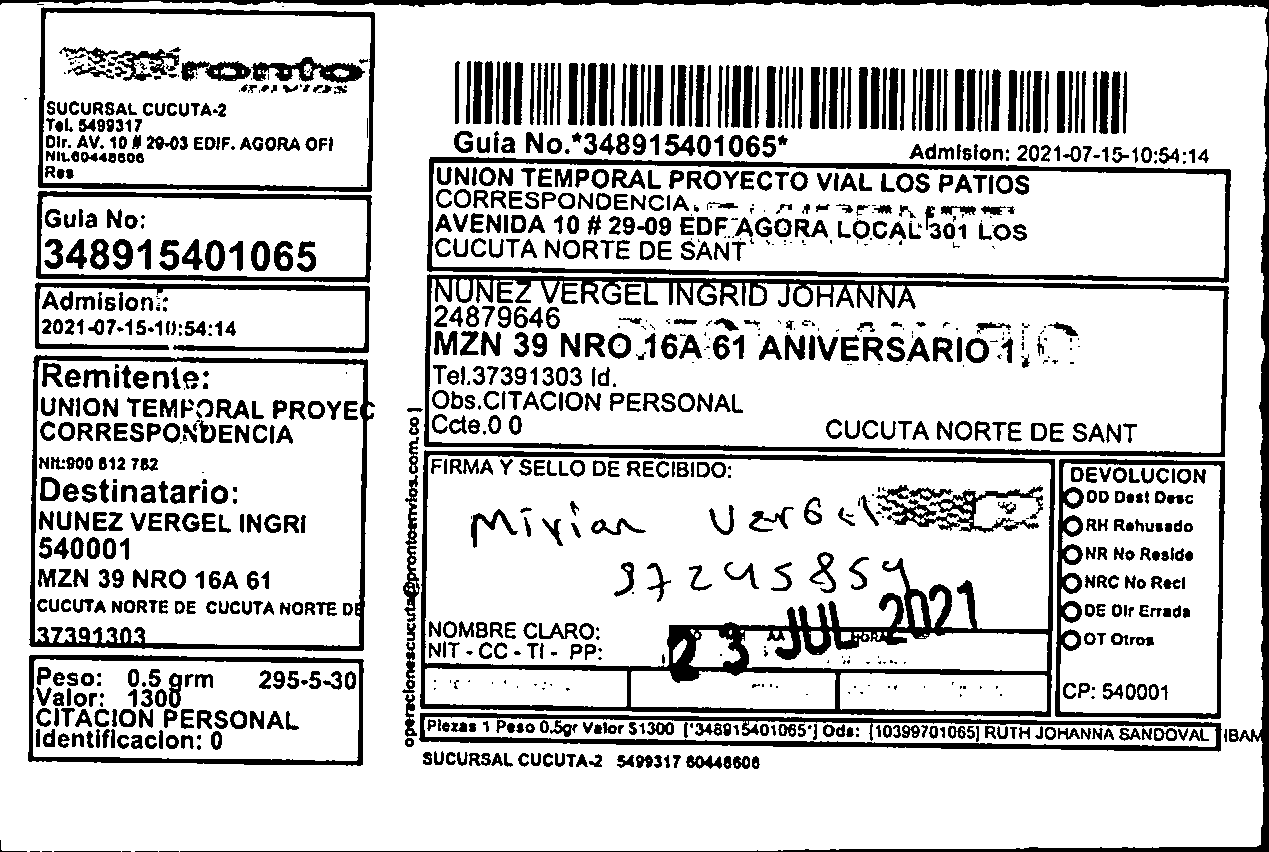 Pronto
ENVIOS
SUCURSAL CUCUTA-2
Tel. 5499317
Dir. AV. 10 # 29-03 EDIF. AGORA OFI
Nit.60448606
Res
Guia No:
348915401065
Admision:
2021-07-15-10:54:14
Remitente:
UNION TEMPORAL PROYEC
CORRESPONDENCIA
Nit:900 612 782
Destinatario:
NUNEZ VERGEL INGRI
540001
MZN 39 NRO 16A 61
CUCUTA NORTE DE CUCUTA NORTE DE
37391303
Peso: 0.5 grm 295-5-30
Valor: 1300
CITACION PERSONAL
Identificacion: 0
operacionescucuta@prontoenvios.com.co
Guia No.*348915401065*
Admision: 2021-07-15-10:54:14
UNION TEMPORAL PROYECTO VIAL LOS PATIOS
CORRESPONDENCIA
AVENIDA 10 # 29-09 EDF AGORA LOCAL 301 LOS
CUCUTA NORTE DE SANT
NUNEZ VERGEL INGRID JOHANNA
24879646
MZN 39 NRO 16A 61 ANIVERSARIO 1
Tel.37391303 Id.
Obs.CITACION PERSONAL
Ccte.0 0 CUCUTA NORTE DE SANT
FIRMA Y SELLO DE RECIBIDO:
Mirian Vergel
37245854
23 JUL 2021
NOMBRE CLARO:
NIT - CC - TI - PP:
AA HORA
DEVOLUCION
DD Dest Desc
RH Rehusado
NR No Reside
NRC No Recl
DE Dir Errada
OT Otros
CP: 540001
Piezas 1 Peso 0.5gr Valor $1300 [*348915401065*] Ods: [10399701065] RUTH JOHANNA SANDOVAL IBAM
SUCURSAL CUCUTA-2 5499317 60448606